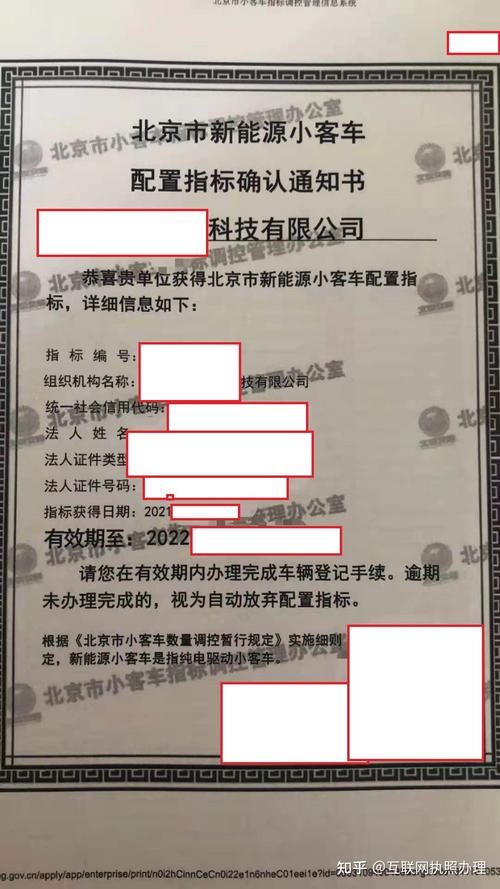 北京市小客车指标调控管理信息系统
北京市新能源小客车
配置指标确认通知书
科技有限公司
恭喜贵单位获得北京市新能源小客车配置指
标，详细信息如下：
指 标 编 号：
组织机构名称： 技有限公司
统一社会信用代码：
法 人 姓 名
法人证件类型
法人证件号码：
指标获得日期：2021
有效期至：2022
请您在有效期内办理完成车辆登记手续。逾期
未办理完成的，视为自动放弃配置指标。
根据《北京市小客车数量调控暂行规定》实施细则
定，新能源小客车是指纯电驱动小客车。
北京市小客车指标调控管理办公室
知乎 @互联网执照办理